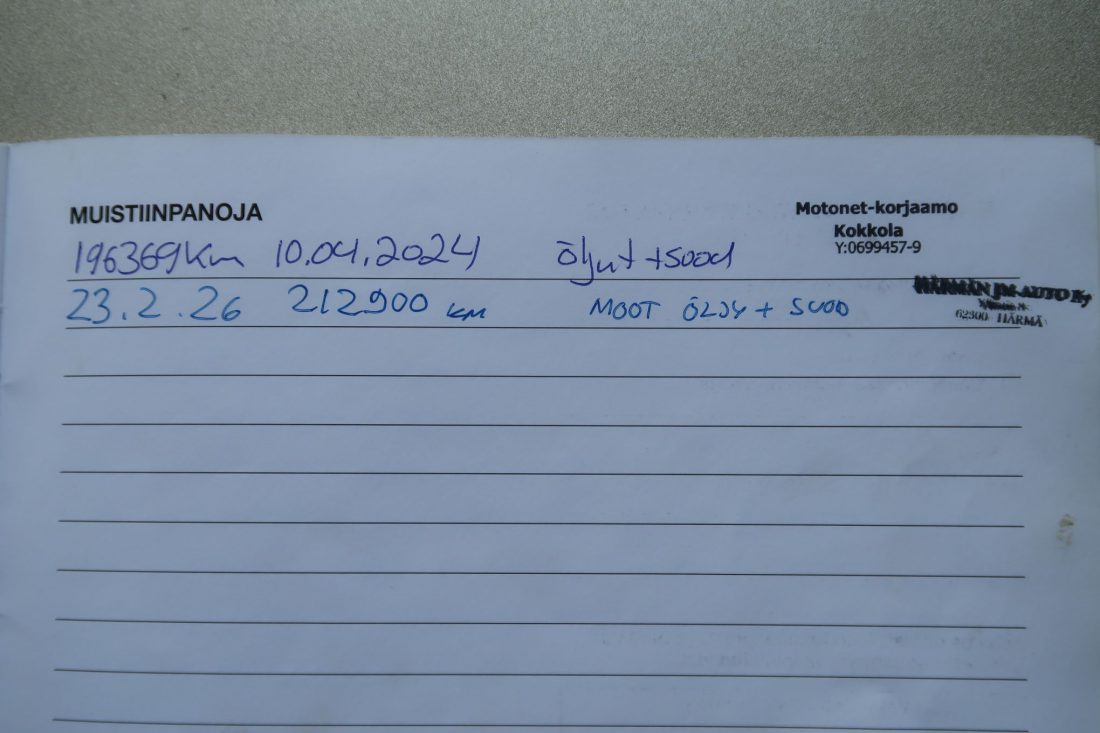 MUISTIINPANOJA
Motonet-korjaamo
Kokkola
Y:0699457-9
196369Km 10.04.2024 öljyt + suod
23.2.26 212900 KM MOOT ÖLJY + SUOD
HÄRMÄN JM-AUTO Ky
62300 HÄRMÄ